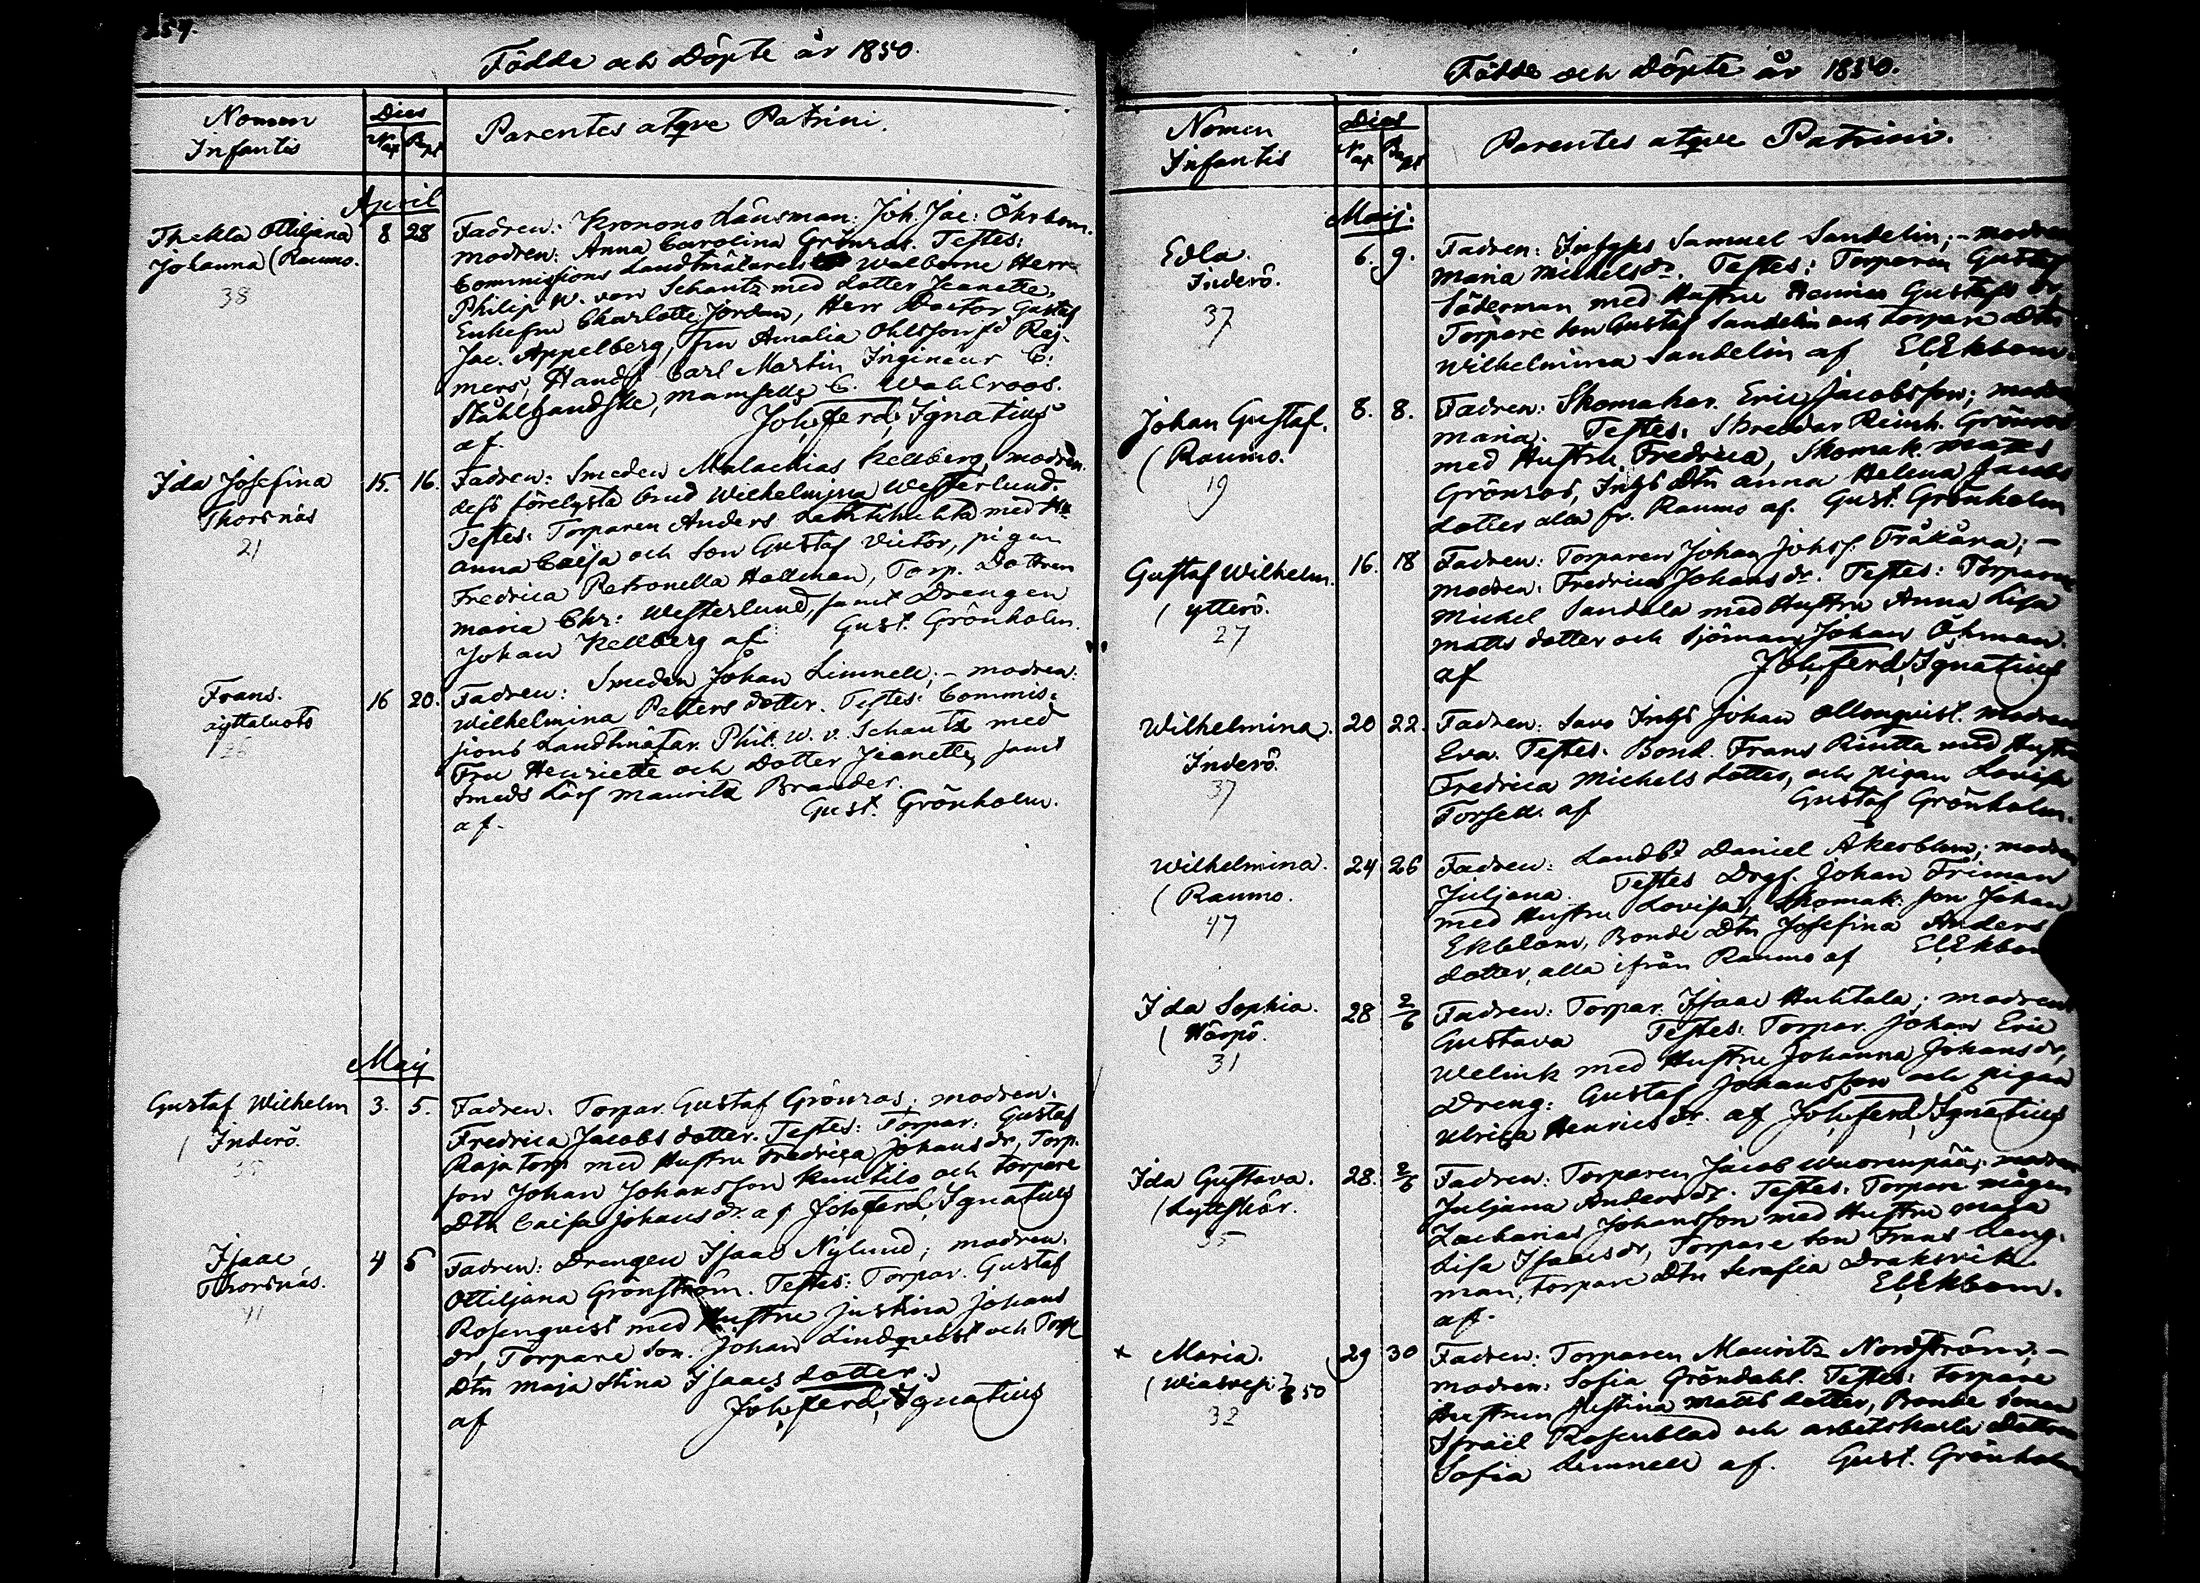 157.
Födde och Döpte år 1850.
Nomen
Infantis
Dies
Nat
Bapt
Parentes atqve Patrini.
April
Thekla Ottiljana
Johanna (Raumo.
38
8 28
Fadren: Kronono Länsman: Joh. Jac: Öhrbom.
modren: Anna Carolina Grönros. Testes:
Commissions Landtmätaren Walborne Herr
Philip W. von Schantz med dotter Jeanette,
Enkefru Charlotte Jordan, Herr Doctor Gustaf
Jac. Appelberg, Fru Amalia Ohlsson fd. Rej-
mers, Handl. Carl Martin Ingineur C.
Stålhandske, mamselle C. Wahlroos.
af Joh, ferd, Ignatius
Ida Josefina
Thorsnäs
21
15. 16.
Fadren: Smeden Malachias Kellberg, modren.
dess förelysta brud Wilhelmina Westerlund.
Testes: Torparen Anders med Hu
Anna Caisa och Son Gustaf Victor, pigan
Fredrica Petronella Hallman, Torp. Dottren
Maria Chr: Westerlund, samt Drengen
Johan Kellberg af Gust. Grönholm.
Frans.
äyttaluoto
26
16 20.
Fadren: Smeden Johan Limnell; - modren:
Wilhelmina Petters dotter. Testes: Commis-
sions Landtmätar. Phil. W. v. Schantz med
Fru Henriette och Dotter Jeanette, samt
Smeds Lärl Mauritz Brander.
af. Gust. Grönholm.
Maij
Gustaf Wilhelm
( Inderö.
35
3. 5.
Fadren. Torpar. Gustaf Grönros; modren.
Fredrica Jacobs dotter. Testes: Torpar. Gustaf
Rajatorp med Hustru Fredrica Johans dr, Torp.
son Johan Johansson Knutilo och Torpare
Dtn Caisa Johans dr. af Joh, ferd, Ignatius
Isaac
Thorsnäs.
41
4 5
Fadren: Drengen Isaac Nylund; modren.
Ottiljana Grönström. Testes: Torpar. Gustaf
Rosenqvist med Hustru Justina Johans
dr, Torpare Son. Johan Lindqvist och Torp
Dtn Maja Stina Isaacs dotter.
af Joh, ferd, Ignatius
Födde och Döpte år 1850.
Nomen
Infantis
Dies
Nat
Bapt
Parentes atqve Patrini.
Maij.
Edla.
Inderö.
37
6. 9.
Fadren: Inhyses Samuel Sandelin; - modren
Maria Michels dr. Testes: Torparen Gustaf
Söderman med Hustru Gustafs dr
Torpare Son Gustaf Sandelin och Torpare Dtn
Wilhelmina Sandelin af E, Ekbom.
Johan Gustaf.
( Raumo.
19
8. 8.
Fadren: Skomakar. Eric Jacobsson; modren
Maria. Testes: Skreddar Reinh. Grönros
med Hustru Fredrica, Skomak. Matts
Grönros, Inhs Dtn Anna Helena Jacobs
dotter alla fr. Raumo af. Gust. Grönholm
Gustaf Wilhelm.
( ytterö.
27
16. 18
Fadren: Torparen Johan Johss. Träkära; -
modren: Fredrica Johans dr. Testes: Torparen
Michel Sandala med Hustru Anna Lisa
Matts dotter och Sjöman Johan Öhman.
af Joh, ferd, Ignatius
Wilhelmina
Inderö.
37
20 22.
Fadren: Savo Inhs Johan Ollonqvist. modren
Eva. Testes. Bond. Frans Rintta med Hustru
Fredrica Michels dotter, och pigan Lovisa
Forsell. af Gustaf Grönholm.
Wilhelmina.
( Raumo.
47
24 26
Fadren: Landbd Daniel Åkerblom; modren
Juljana. Testes Drgs. Johan Friman
med Hustru Lovisa, Skomak. son Johan
Ekblom, Bonde Dtn Josefina Anders
dotter, alla ifrån Raumo af E, Ekbom
Ida Sophia.
( Härpö.
31
28 2/6
Fadren: Torpar. Isaac Huhtala; modren
Gustava Testes: Torpar. Johan Eric
Welink med Hustru Johanna Johans dr,
Dreng: Gustaf Johansson och pigan
Ulrica Henrics dr. af Joh, ferd, Ignatius
Ida Gustava.
( Lyttskär.
35
28. 2/6
Fadren: Torparen Jacob Wuorenpää; modren
Juljana Anders dr. Testes: Torpare mågen
Zacharias Johansson med Hustru Maja
Lisa Isaacs dr, Torpare Son Frans Läng-
man, Torpare Dtn Serafia Draksvik
af. E, Ekbom.
x Maria.
( Wiasvesi 50
32
29 30
Fadren: Torparen Mauritz Nordström; -
modren: Sofia Gröndahl. Testes: Torpare
Hustrun Justina Matts dotter, Bonde Sonen
Israël Rosenblad och arbetskarls Dottren
Sofia Limnell af. Gust. Grönholm